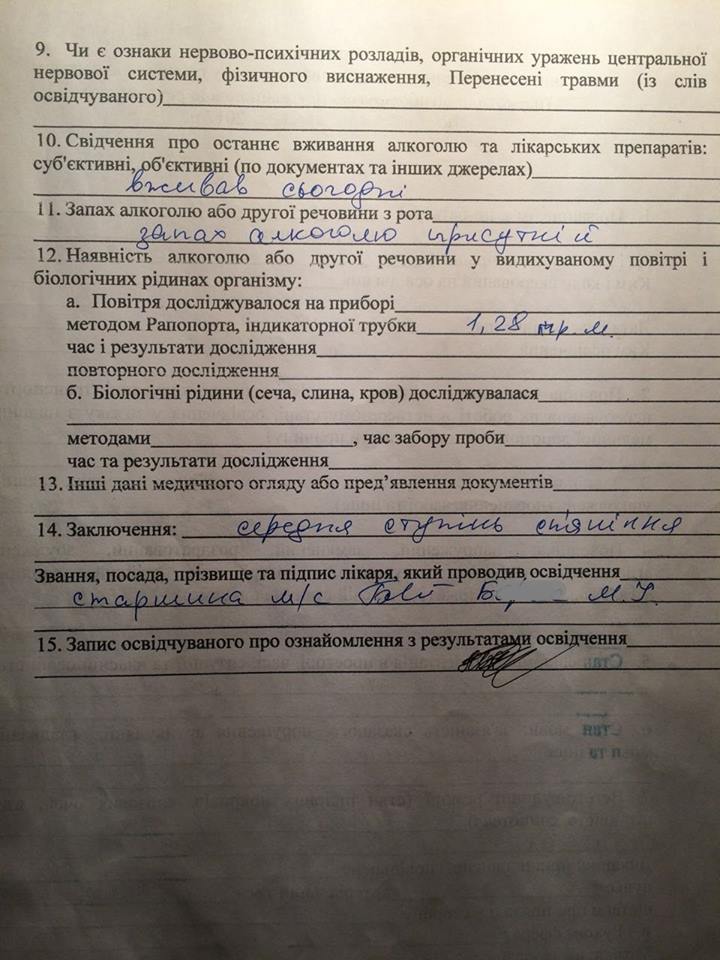 9. Чи є ознаки нервово-психічних розладів, органічних уражень центральної
нервової системи, фізичного виснаження, Перенесені травми (із слів
освідчуваного)
10. Свідчення про останнє вживання алкоголю та лікарських препаратів:
суб'єктивні, об'єктивні (по документах та інших джерелах)
вживав сьогодні
11. Запах алкоголю або другої речовини з рота
запах алкоголю присутній
12. Наявність алкоголю або другої речовини у видихуваному повітрі і
біологічних рідинах організму:
а. Повітря досліджувалося на приборі
методом Рапопорта, індикаторної трубки 1,28 пр. м.
час і результати дослідження
повторного дослідження
б. Біологічні рідини (сеча, слина, кров) досліджувалася
методами, час забору проби
час та результати дослідження
13. Інші дані медичного огляду або пред’явлення документів
14. Заключення: середня ступінь спяніння
Звання, посада, прізвище та підпис лікаря, який проводив освідчення
старшина м/с Б. М.У.
15. Запис освідчуваного про ознайомлення з результатами освідчення